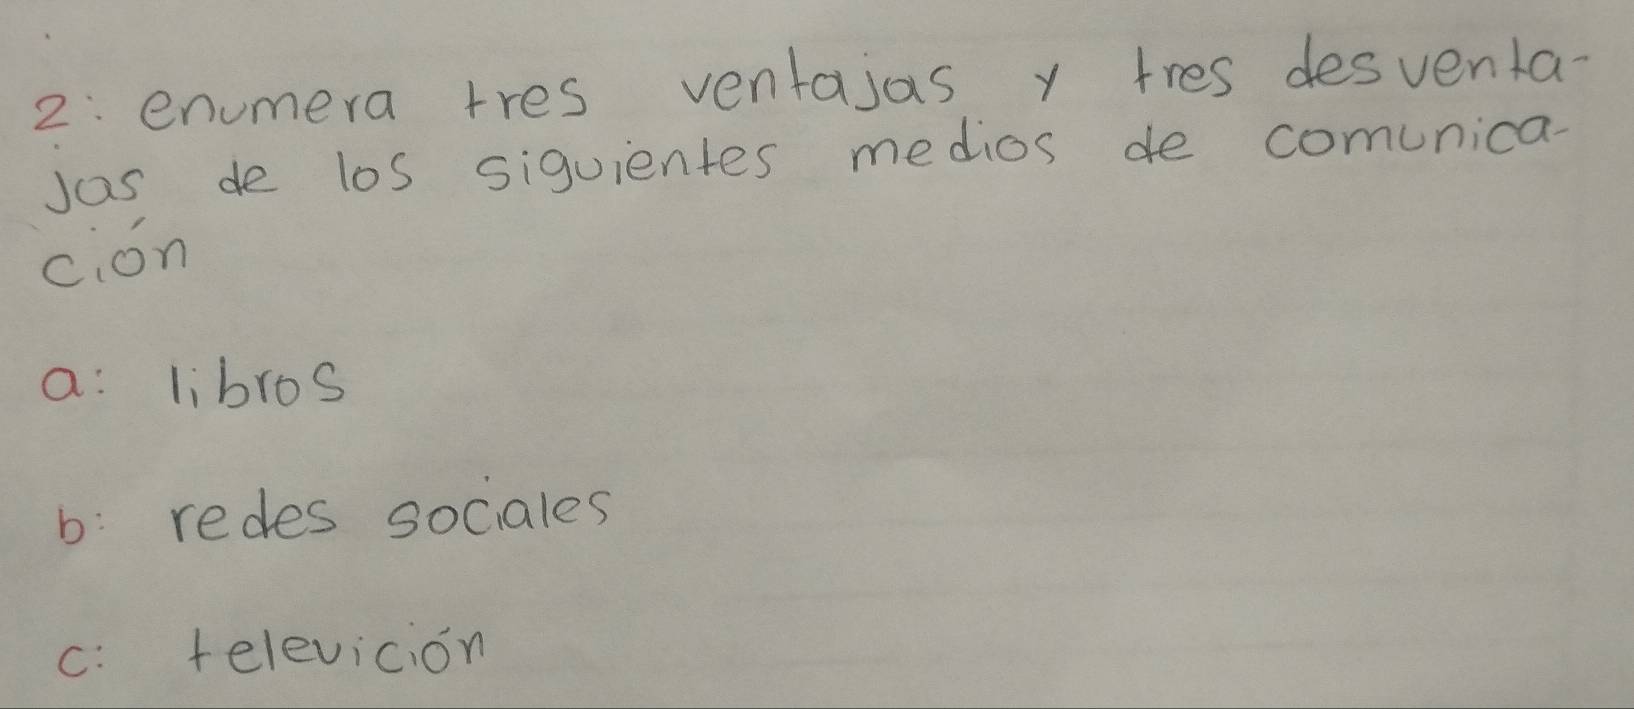 2: enumera tres ventajas y tres desventa-
jas de los siguientes medios de comunica-
ción
a: libros
b: redes sociales
c: televición